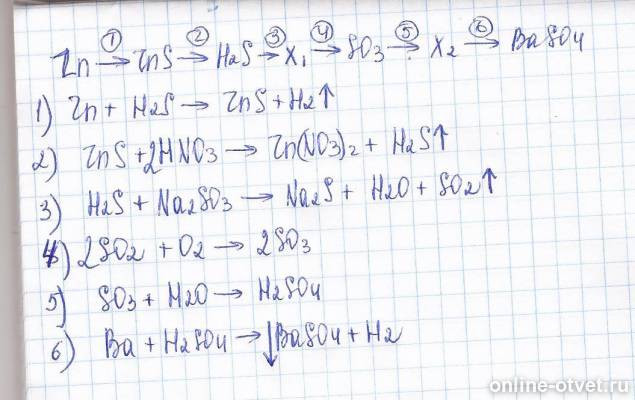 Zn →① ZnS →② H2S →③ X1 →④ SO3 →⑤ X2 →⑥ BaSO4
1) Zn + H2S → ZnS + H2↑
2) ZnS + 2HNO3 → Zn(NO3)2 + H2S↑
3) H2S + Na2SO3 → Na2S + H2O + SO2↑
4) 2SO2 + O2 → 2SO3
5) SO3 + H2O → H2SO4
6) Ba + H2SO4 → ↓BaSO4 + H2
online-otvet.ru